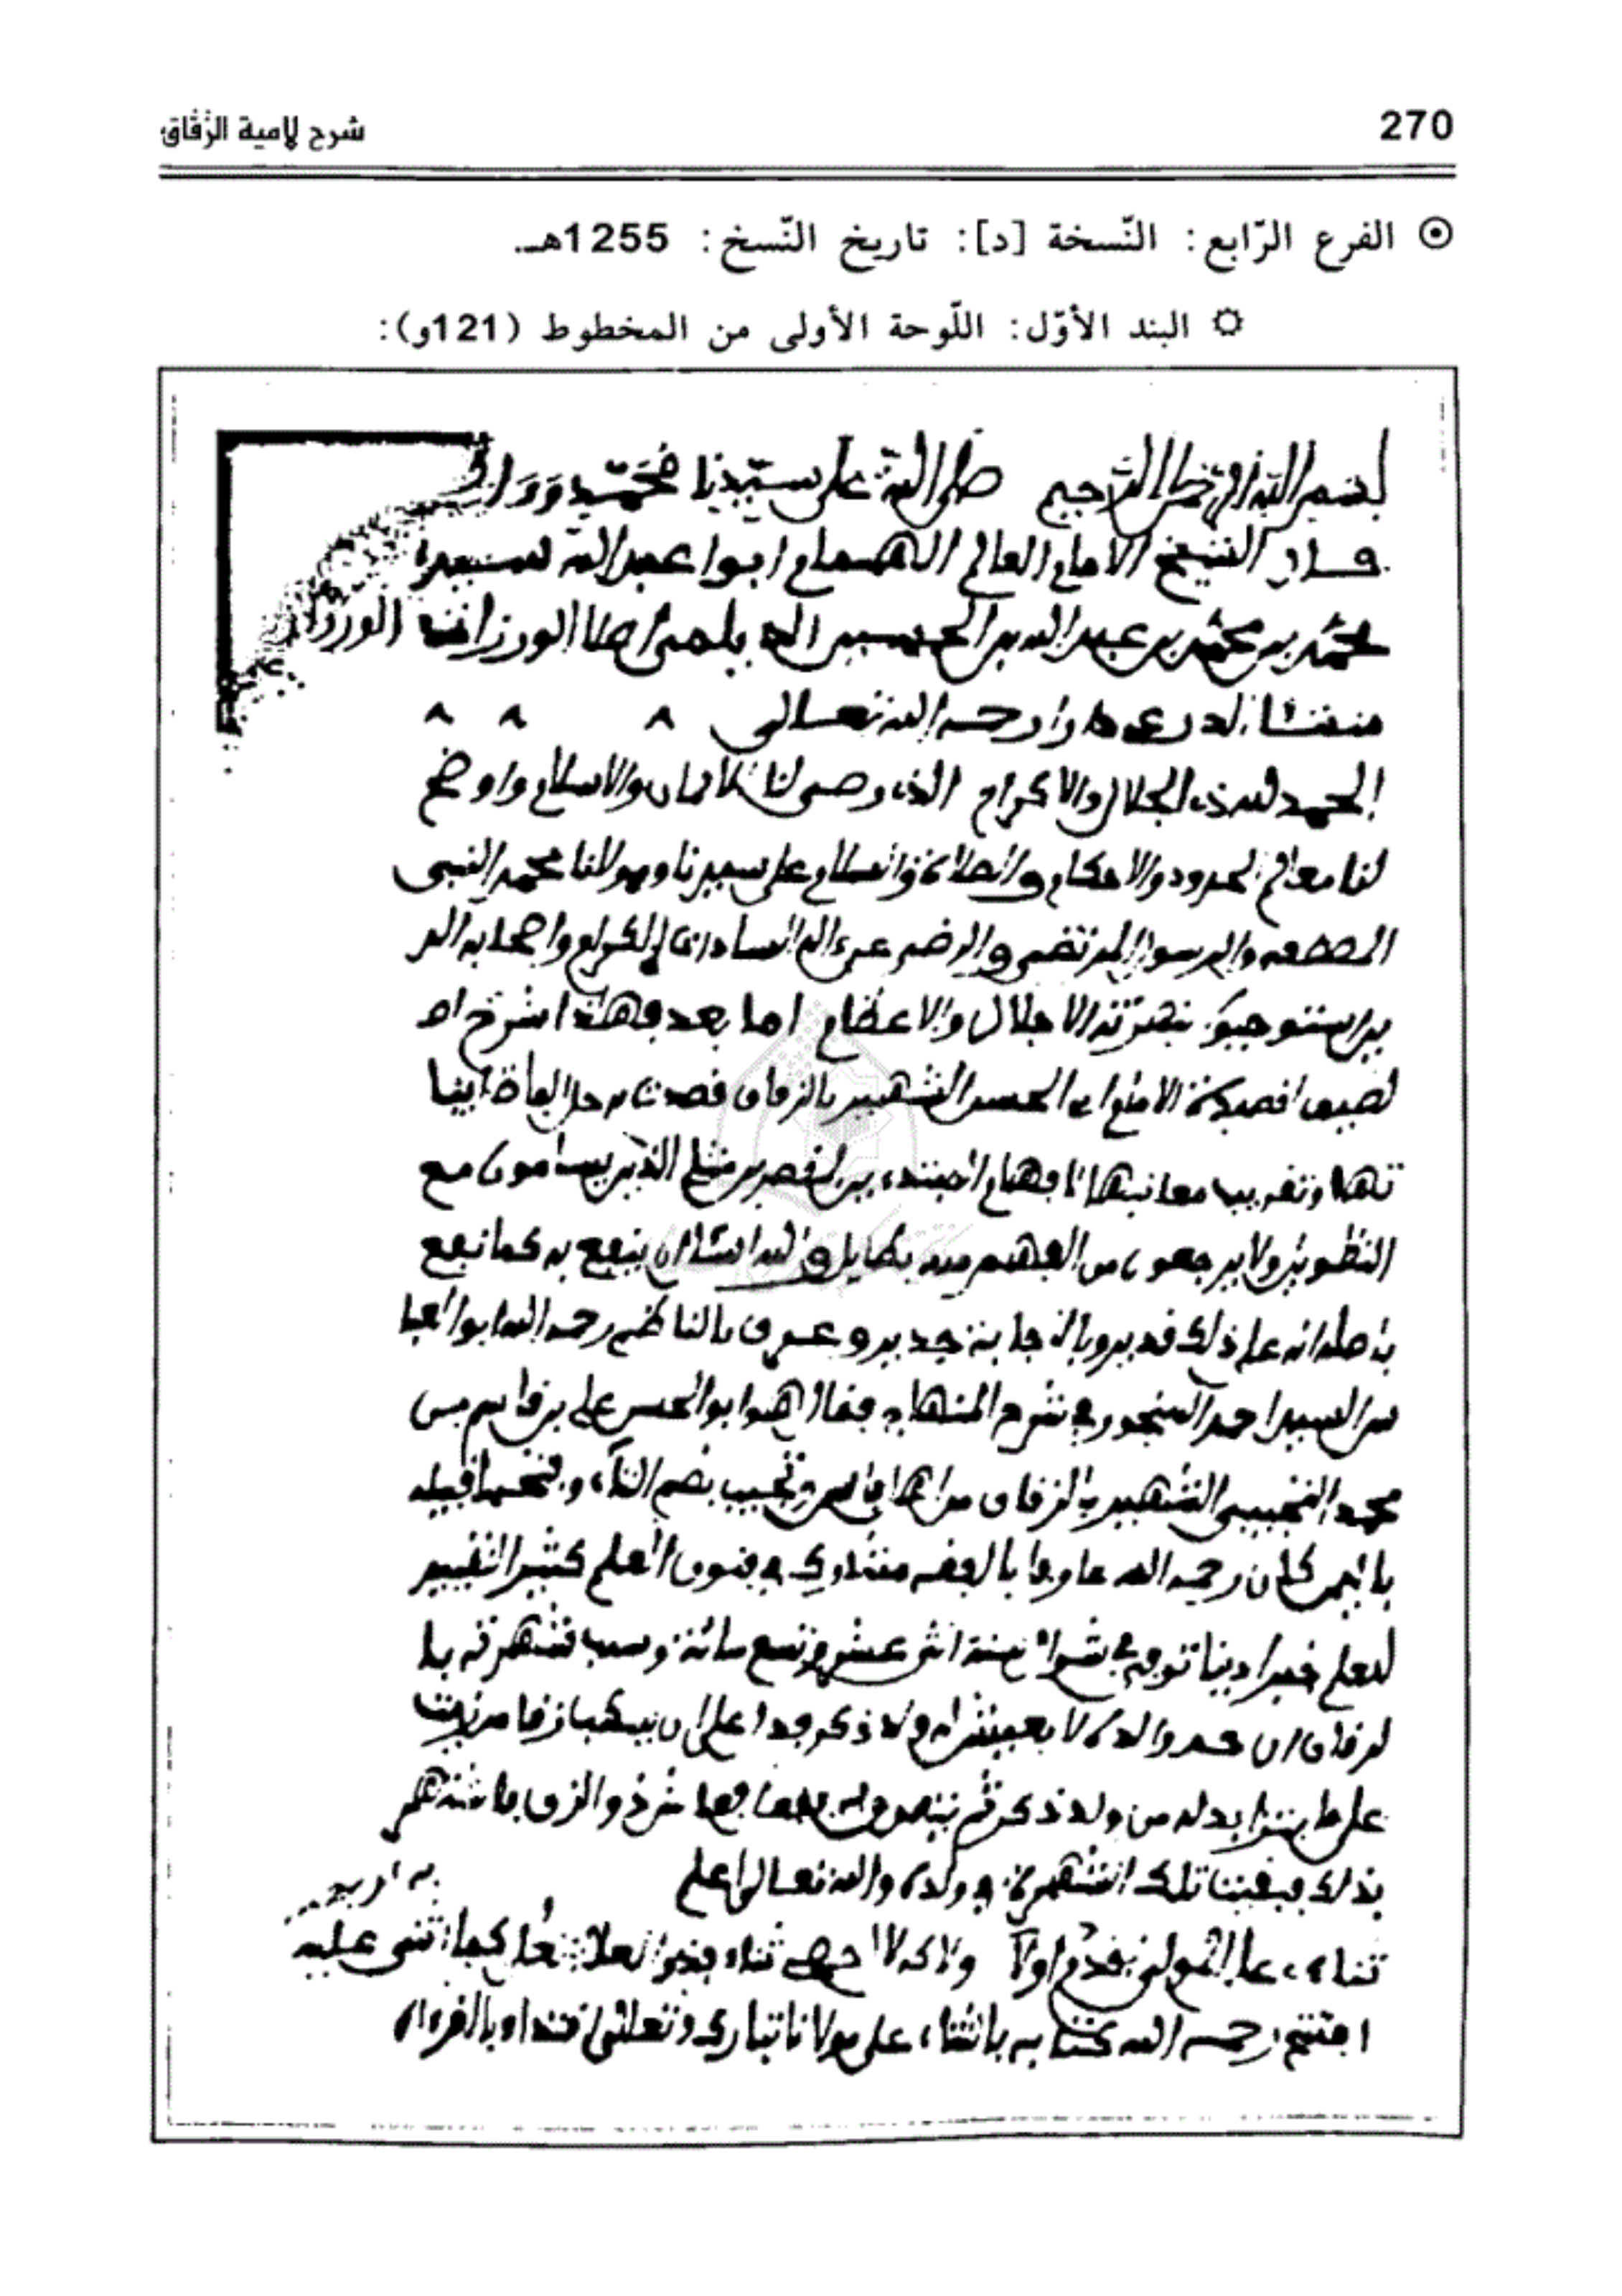 270
شرح لامية الزقاق
⊙ الفرع الرّابع: النّسخة [د]: تاريخ النّسخ: 1255هـ.
☼ البند الأوّل: اللّوحة الأولى من المخطوط (121و):
بسم الله الرحمن الرحيم صلى الله على سيدنا محمد وءاله
قال الشيخ الامام العالم الهمام ابوا عبد الله سيدي
محمد بن محمد بن عبد الله بن الحسين اصلا الورزازي
منشئا الدرعي دارا رحمه الله تعالى
الحمد لله ذي الجلال والاكرام الذي لنا الايمان والاسلام واوضح
لنا معالم الحدود والاحكام والصلاة والسلام على سيدنا ومولانا محمد النبي
المصطفى والرسول المرتضى والرضى عن ءاله السادات الكرام واصحابه الذ
ين استوجبوا الاجلال والاعظام اما بعد فهذا شرح
لقصيدة الامام ابي الحسن الشهير بالزقاق قصدت به حل الفاظ ابيا
تها وتقريب معانيها لافهام المبتدءين القاصرين مثلي الذين يسامون مع
التطويل ولا يرجعون من الفهم منه بطايل والله اسئل ان ينفع به كما نفع
باصله انه على ذلك قدير وبالاجابة جدير وعرف بالناظم رحمه الله ابوا العبا
س السيد احمد المنجور في شرح المنهاج فقال هو ابوا الحسن علي بن قاسم بن
محمد التجيبي الشهير بالزقاق من اهل فاس وتجيب بضم التاء وفتحها قبيلة
باليمن كان رحمه الله عارفا بالفقه متشاركا في فنون العلم كثير التقييد
للعلم خيرا دينا توفي في شوال سنة اثنى عشر وتسع مائة وسبب شهرته با
لزقاق ان والده لا يعيش له ولد ذكر على ان زقا من زيت
على ما يتزايد له من ولد ذكر ثم والزق فاشتهر
بذلك فبقيت تلك الشهرة في ولده والله تعالى اعلم
ثناءي على المولى يقدم اولا ثناء كما اثنى عليه
افتتح رحمه الله كتابه بالثناء على مولانا تبارك وتعالى اقتداء بالقرءان